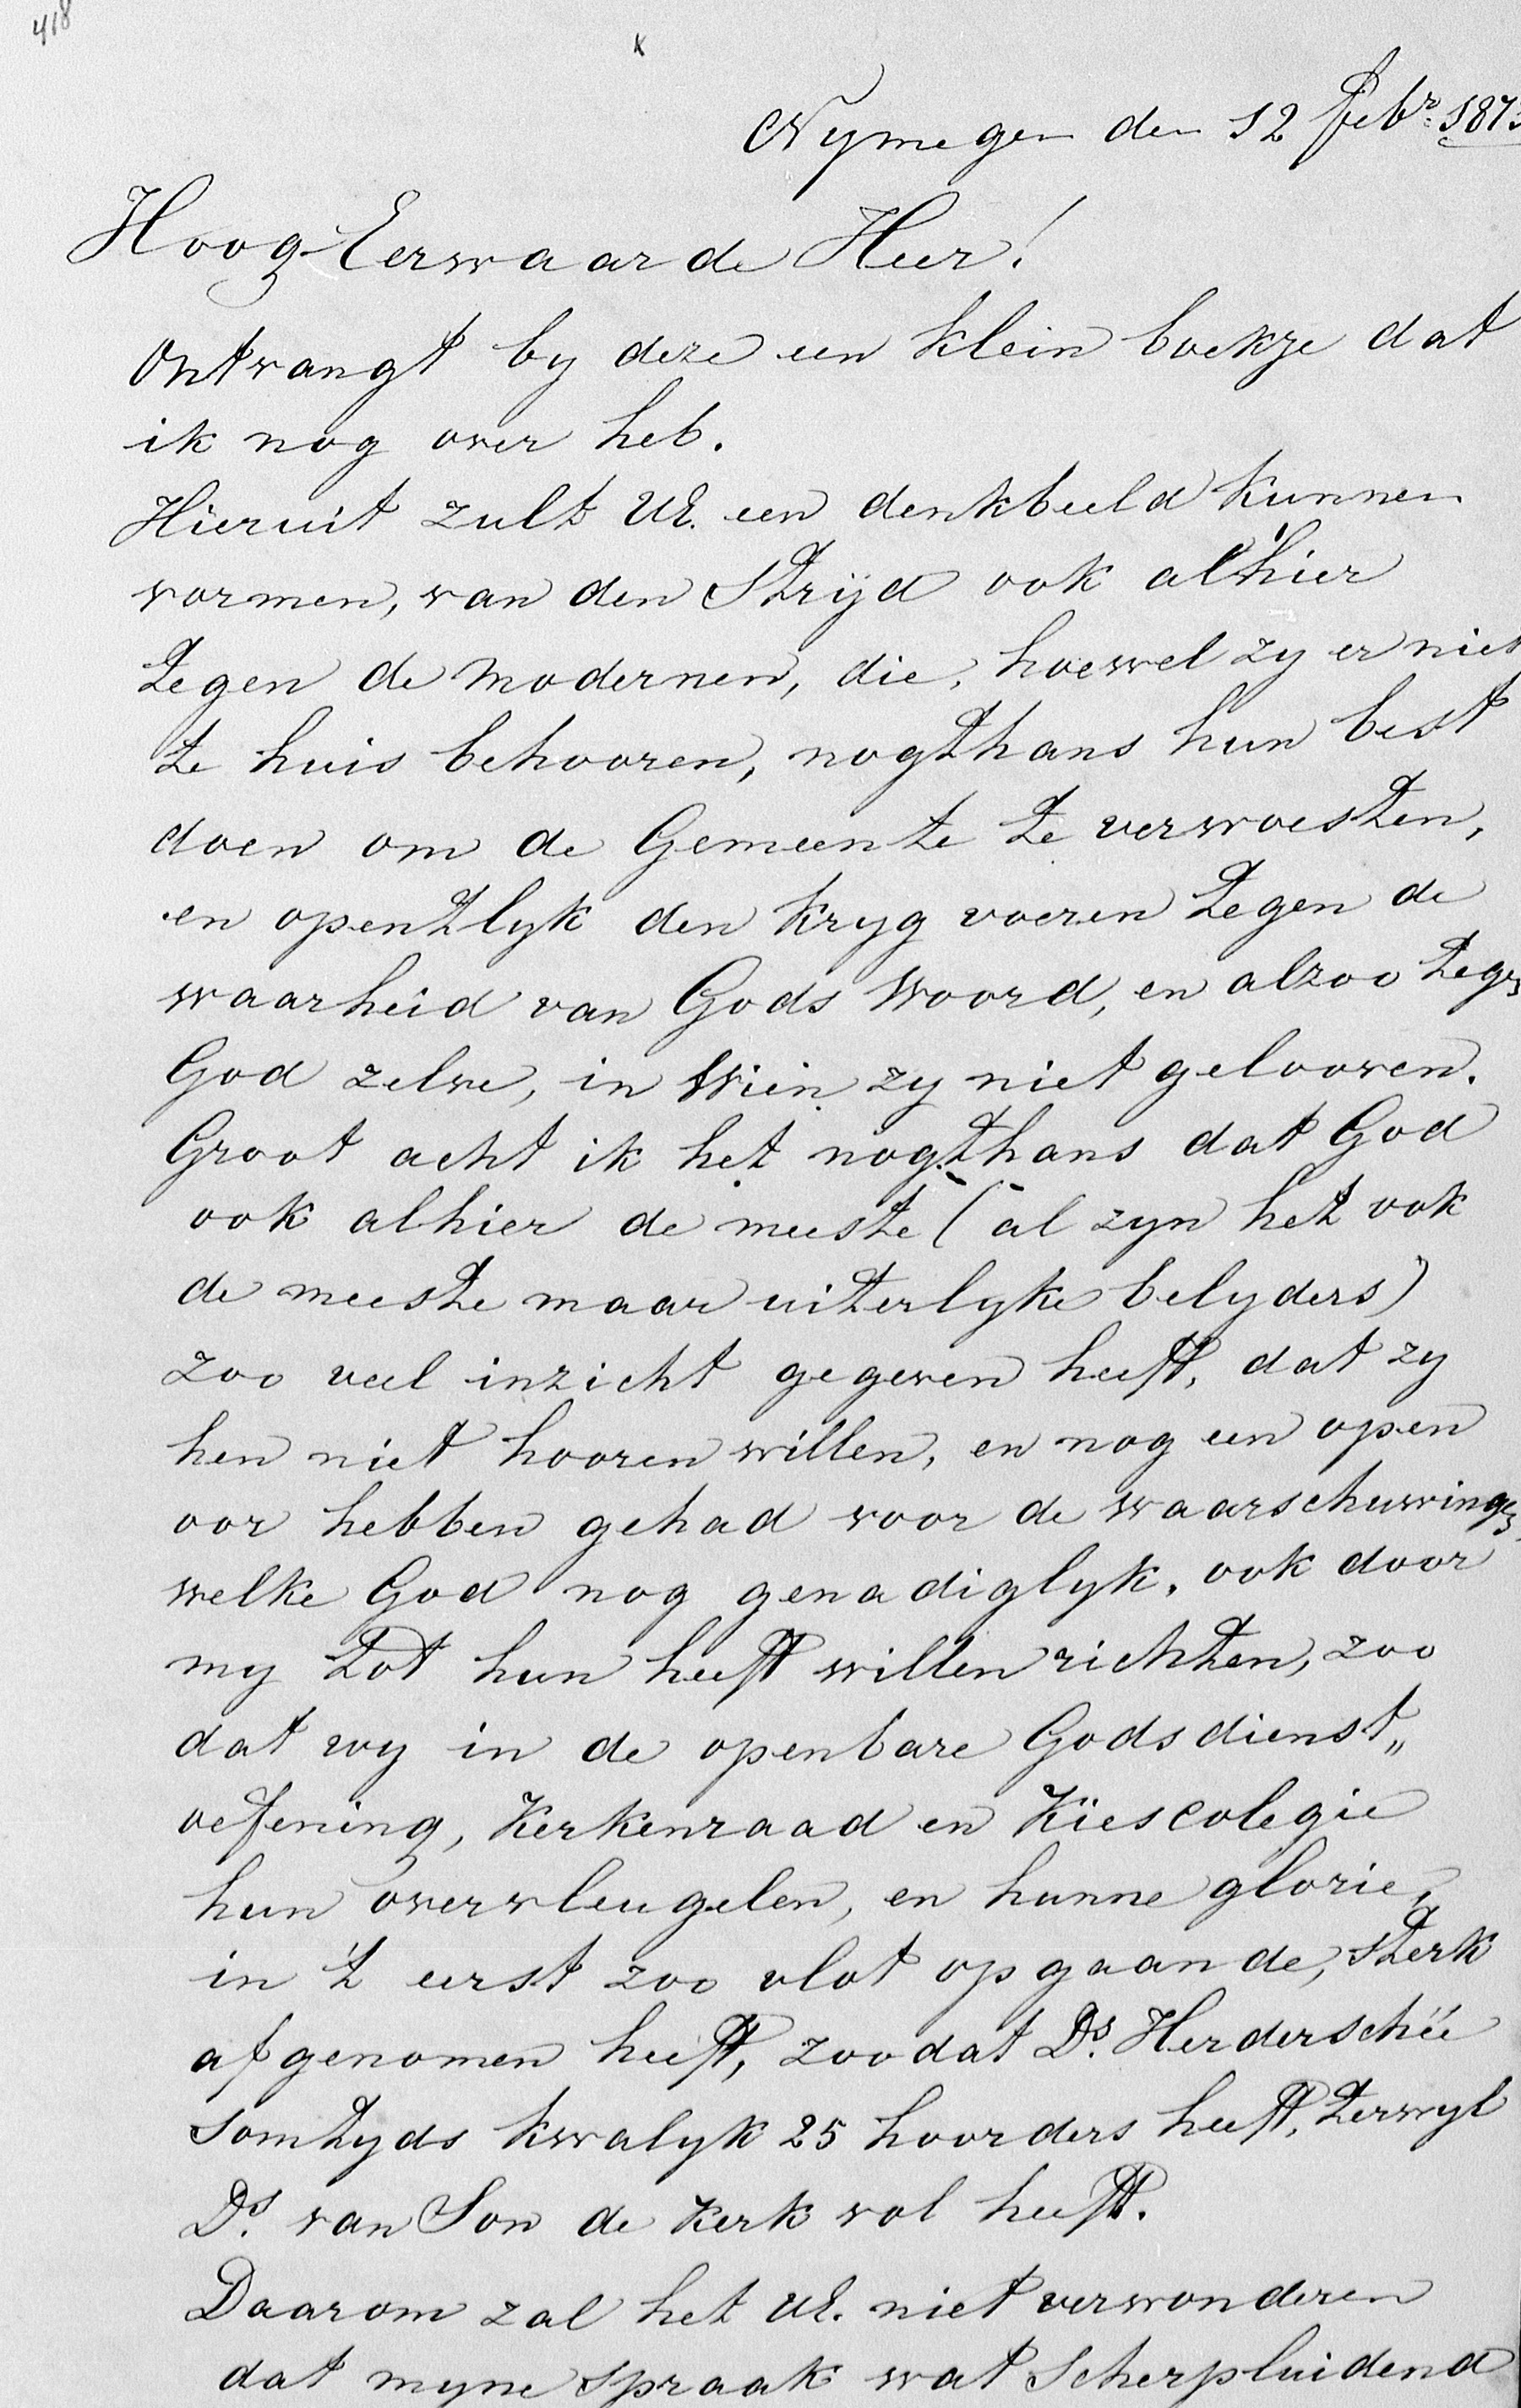 418
x
Nymegen den 12 Febr: 187
Hoog-Eerwaarde Heer!
Ontvangt by deze een klein boekje dat
ik nog over heb.
Hieruit zult UE. een denkbeeld kunnen
vormen, van den Strijd ook alhier
tegen de Modernen, die, hoewel zy er niet
te huis behooren, nogthans hun best
doen om de Gemeente te verwoesten,
en opentlyk den kryg voeren tegen de
waarheid van Gods Woord, en alzoo tegen
God zelve, in Wien zy niet gelooven.
Groot acht ik het nogthans dat God
ook alhier de meeste (al zyn het ook
de meeste maar uiterlyke belyders)
zoo veel inzicht gegeven heeft, dat zy
hen niet hooren willen, en nog een open
oor hebben gehad voor de waarschuwingen,
welke God nog genadiglyk, ook door
my tot hun heeft willen richten, zoo
dat wy in de openbare Godsdienst„
oefening, Kerkenraad en Kiescolegie
hun overvleugelen, en hunne glorie,
in 't eerst zoo vlot opgaande, sterk
afgenomen heeft, zoodat Ds. Herderscheé
somtyds kwalyk 25 hoorders heeft, terwyl
Ds. van Son de kerk vol heeft.
Daarom zal het UE. niet verwonderen
dat myne spraak wat scherpluidend